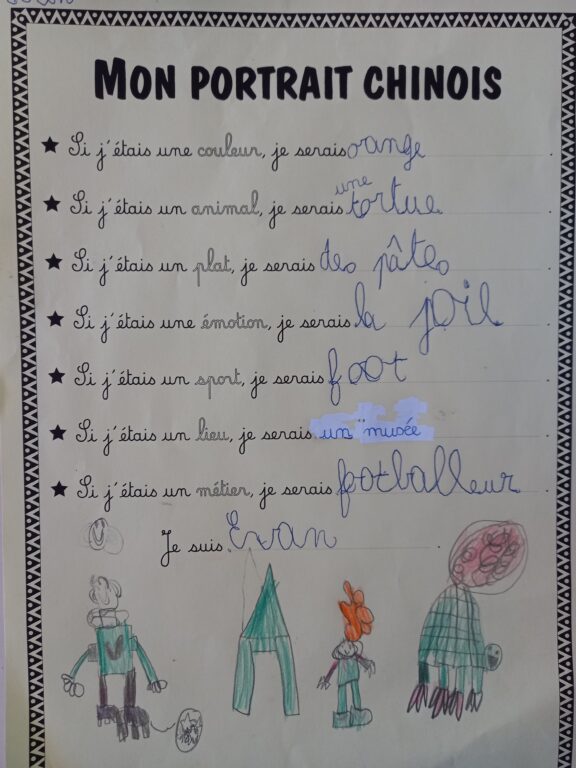 MON PORTRAIT CHINOIS
★ Si j'étais une couleur, je serais orange.
★ Si j'étais un animal, je serais une tortue.
★ Si j'étais un plat, je serais des pâtes.
★ Si j'étais une émotion, je serais la joie.
★ Si j'étais un sport, je serais foot.
★ Si j'étais un lieu, je serais un musée.
★ Si j'étais un métier, je serais footballeur.
Je suis Evan.